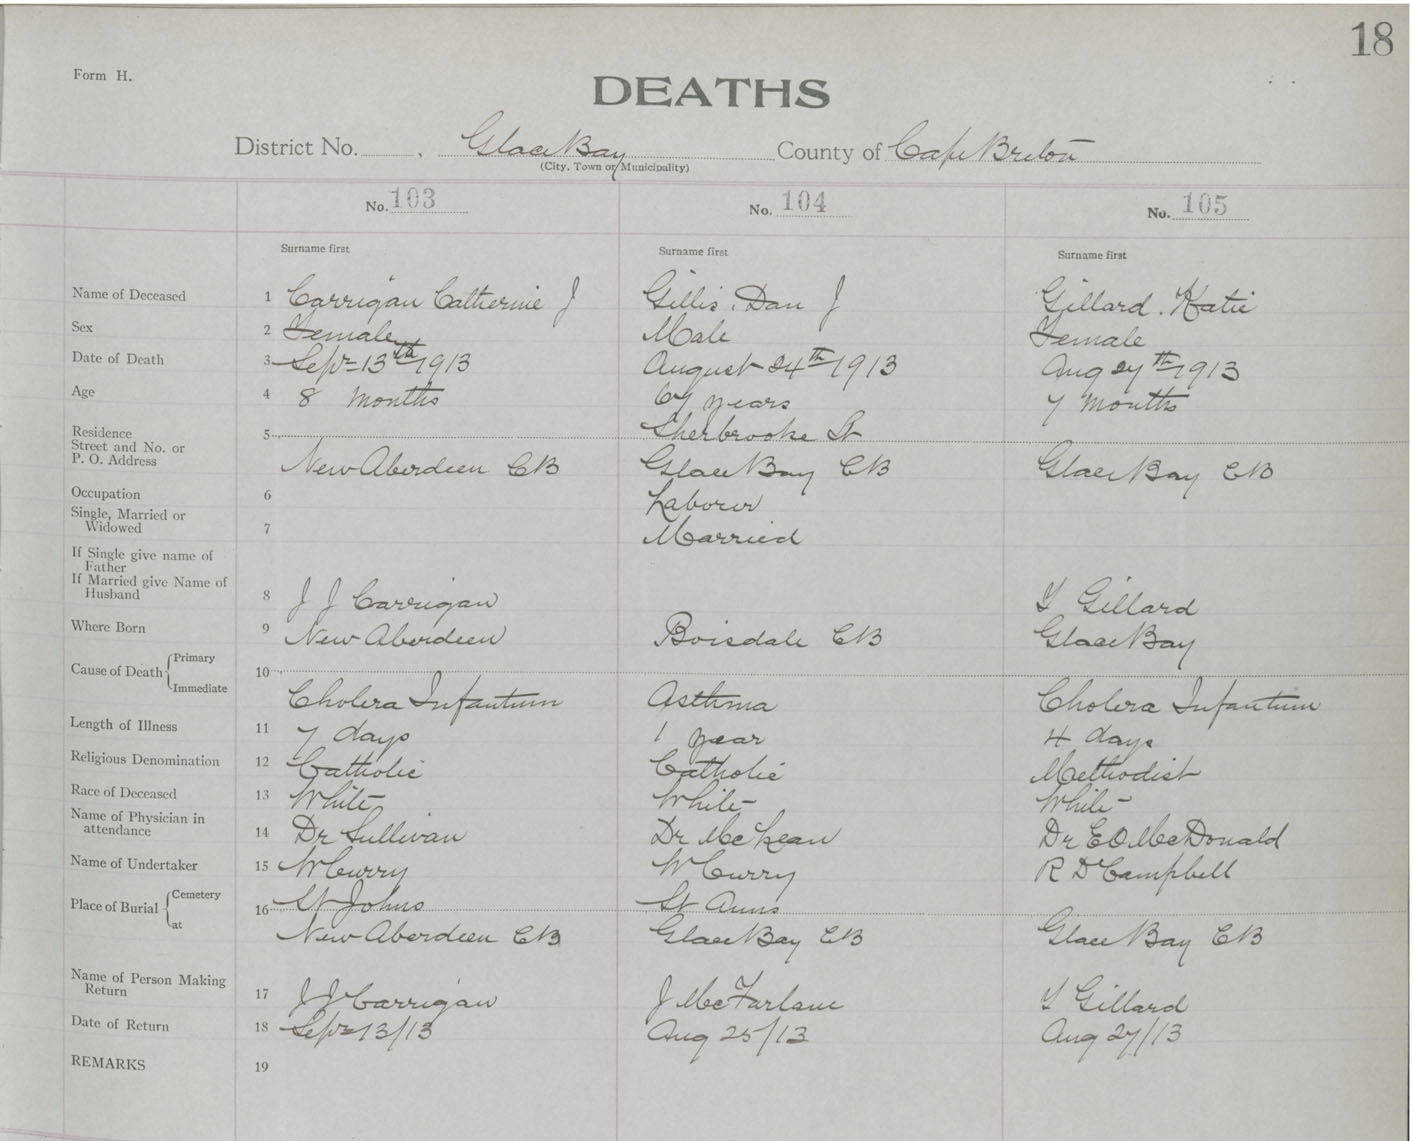 18
Form H.
DEATHS
District No. Glace Bay County of Cape Breton
(City, Town or Municipality)
No. 103 No. 104 No. 105
Surname first Surname first Surname first
Name of Deceased 1 Carrigan Catherine J Gillis, Dan J Gillard, Katie
Sex 2 Female Male Female
Date of Death 3 Sept 13th 1913 August 24th 1913 Aug 27th 1913
Age 4 8 months 67 years 7 months
Residence 5 Sherbrooke St
Street and No. or
P. O. Address New Aberdeen CB Glace Bay CB Glace Bay CB
Occupation 6 Labourer
Single, Married or
Widowed 7 Married
If Single give name of
Father
If Married give Name of
Husband 8 J J Carrigan Gillard
Where Born 9 New Aberdeen Boisdale CB Glace Bay
Cause of Death { Primary 10
Immediate Cholera Infantum Asthma Cholera Infantum
Length of Illness 11 7 days 1 year 4 days
Religious Denomination 12 Catholic Catholic Methodist
Race of Deceased 13 White White White
Name of Physician in
attendance 14 Dr Sullivan Dr McKean Dr E O McDonald
Name of Undertaker 15 W Curry W Curry R D Campbell
Place of Burial { Cemetery 16 St Johns St Anns
at New Aberdeen CB Glace Bay CB Glace Bay CB
Name of Person Making
Return 17 J J Carrigan J McFarlane Gillard
Date of Return 18 Sept 13/13 Aug 25/13 Aug 27/13
REMARKS 19